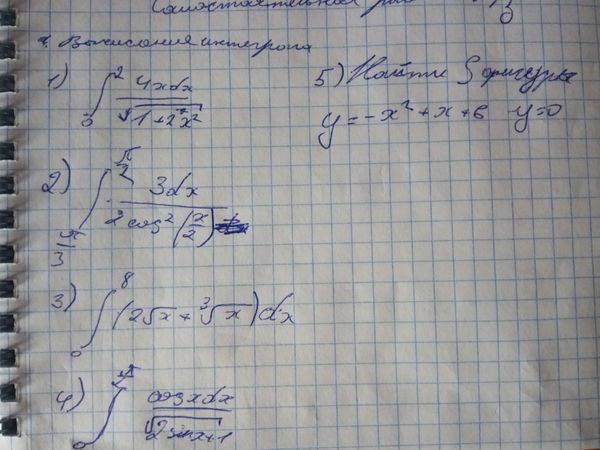 Самостоятельная
Вычисления интеграла
1) ∫₀² 4xdx / √1+2x²
2) ∫_{π/3}^{π/2} 3dx / 2cos²(x/2)
3) ∫₀⁸ (2√x + ∛x)dx
4) ∫₀^{π/2} cosxdx / √2sinx+1
5) Найти S фигуры
y=-x²+x+6 y=0